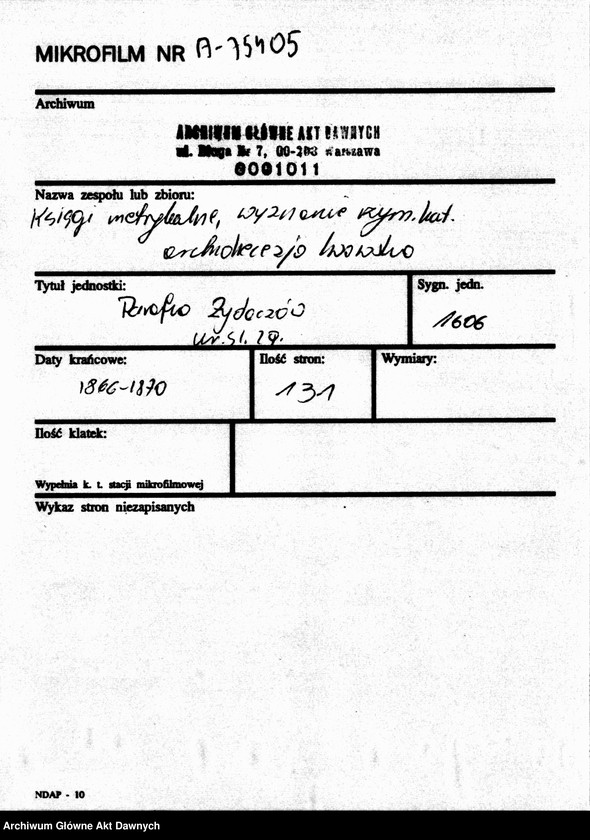 MIKROFILM NR A-75405
Archiwum
ARCHIWUM GŁÓWNE AKT DAWNYCH
ul. Długa Nr 7, 00-263 Warszawa
0001011
Nazwa zespołu lub zbioru:
Księgi metrykalne, wyznanie rzym. kat.
archidiecezja lwowska
Tytuł jednostki:
Parafia Żydaczów
ur. śl. zg.
Sygn. jedn.
1606
Daty krańcowe:
1866-1870
Ilość stron:
131
Wymiary:
Ilość klatek:
Wypełnia k. t. stacji mikrofilmowej
Wykaz stron niezapisanych
NDAP - 10
Archiwum Główne Akt Dawnych